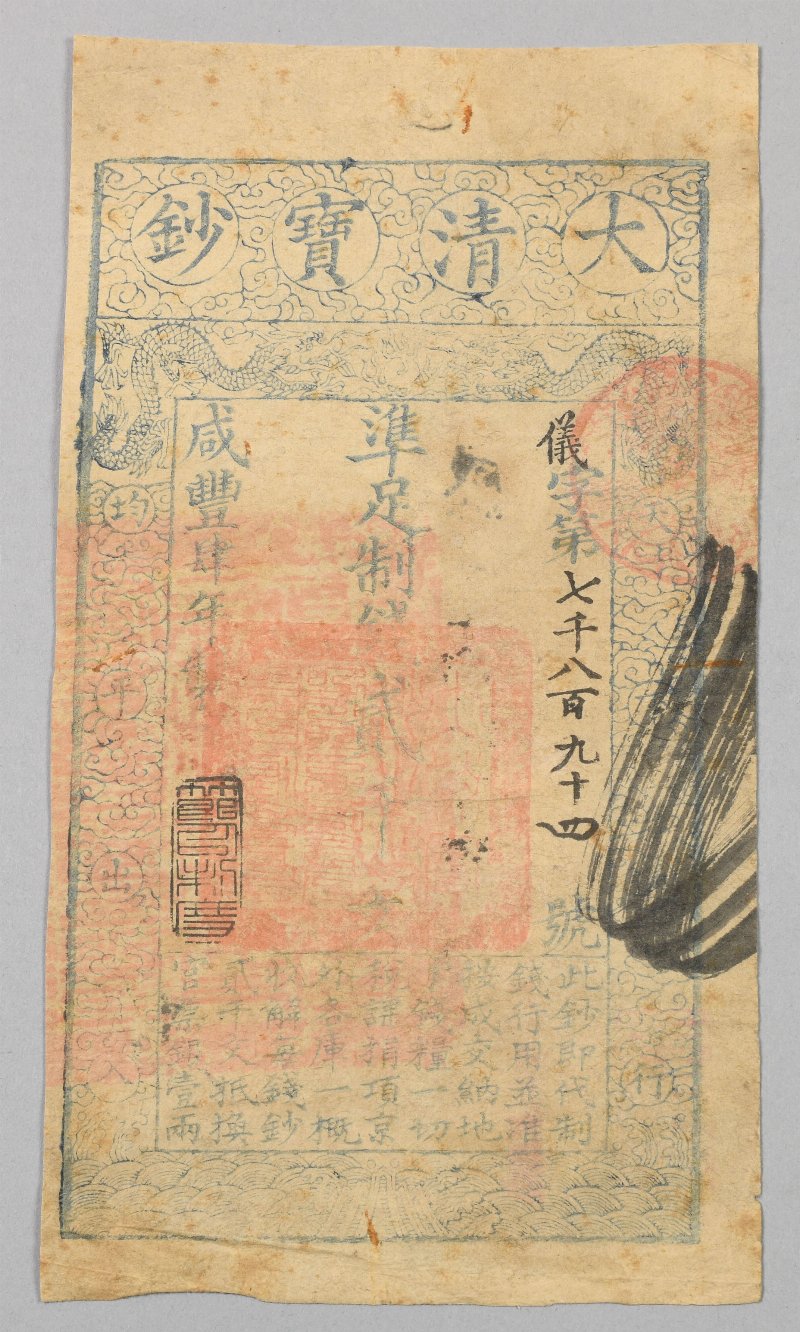 大清寶鈔
天
行
儀字第七千八百九十四號
準足制錢貳千文
咸豐肆年
均平出入
此鈔即代制
錢行用並准
按成交納地
丁錢糧一切
稅課捐項京
外各庫一概
收解每錢鈔
貳千文抵換
官票銀壹兩